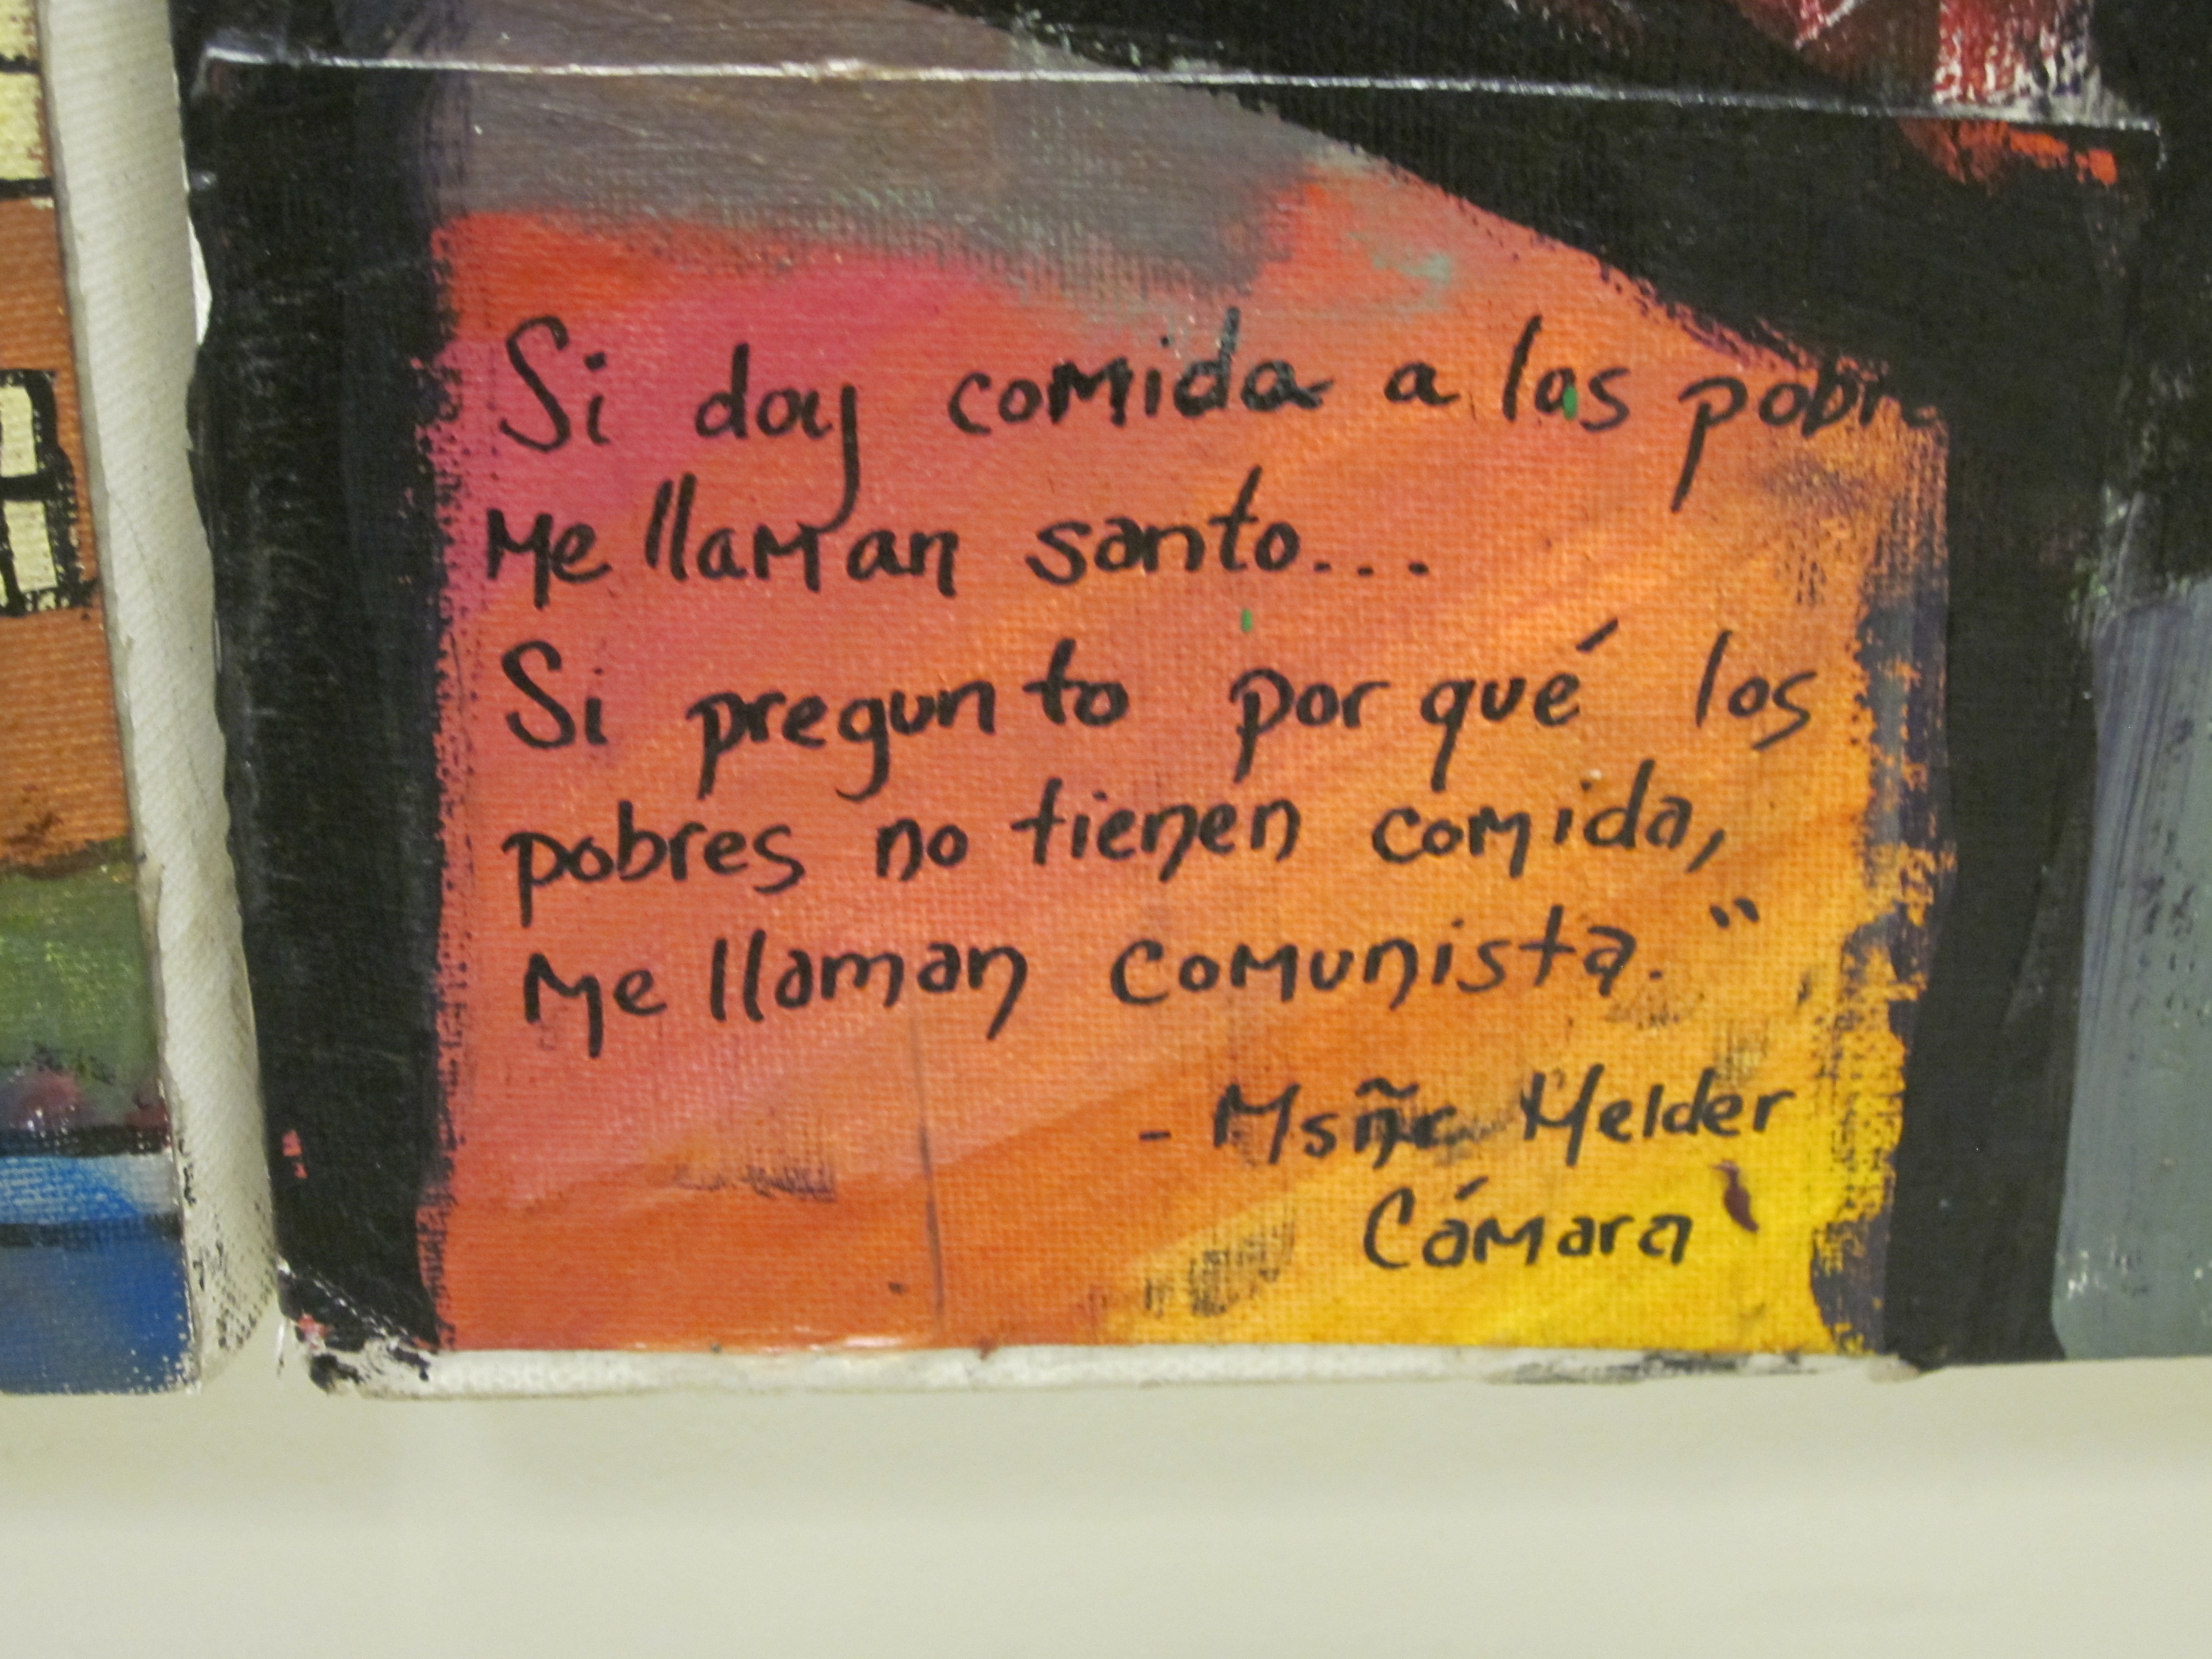 Si doy comida a los pobre
Me llaman santo...
Si pregunto por qué los
pobres no tienen comida,
Me llaman comunista."
- Msñr Helder
Cámara